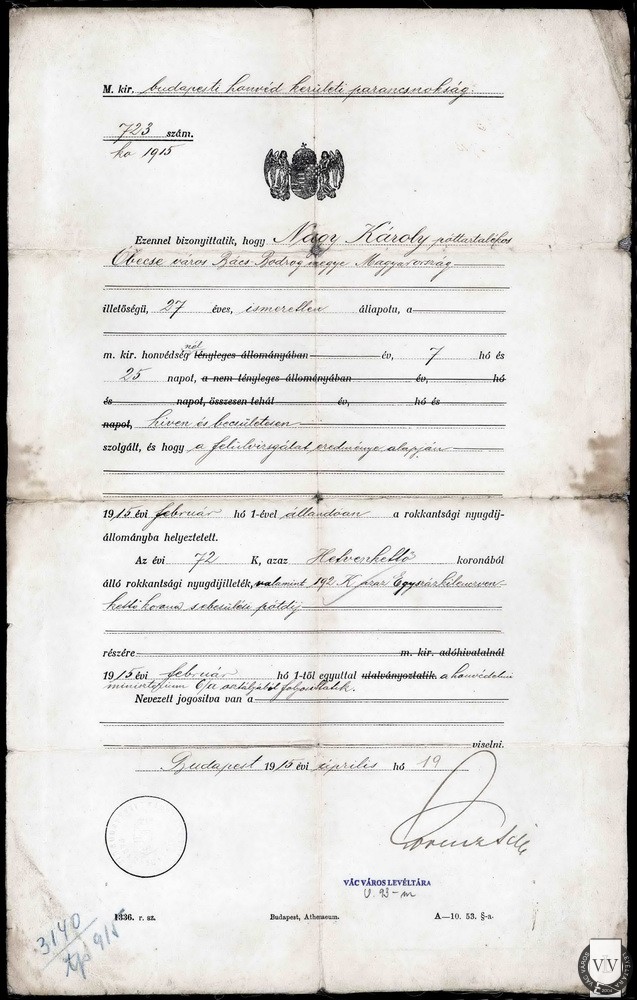 M. kir. budapesti honvéd kerületi parancsnokság.
723 szám.
ko 1915
Ezennel bizonyittatik, hogy Nagy Károly póttartalékos
Óbecse város Bács-Bodrog megye Magyarország
illetőségü, 27 éves, ismeretlen állapotu, a
m. kir. honvédség nél tényleges állományában év, 7 hó és
25 napot, a nem tényleges állományában év, hó
és napot, összesen tehát év, hó és
napot, híven és becsületesen
szolgált, és hogy a felülvizsgálat eredménye alapján
1915 évi február hó 1-ével állandóan a rokkantsági nyugdij-
állományba helyeztetett.
Az évi 72 K, azaz Hetvenkettő koronából
álló rokkantsági nyugdijilleték, valamint 192 K azaz Egyszázkilencven-
kettő korona sebesülési pótdíj
részére m. kir. adóhivatalnál
1915 évi február hó 1-től egyuttal utalványoztatik. a honvédelmi
ministerium osztályától folyósíttatik.
Nevezett jogositva van a
viselni.
Budapest 1915 évi április hó 19
VÁC VÁROS LEVÉLTÁRA
V. 93-m
1336. r. sz. Budapest, Athenaeum. A—10. 53. §-a.
3140
915
VÁC VÁROS LEVÉLTÁRA